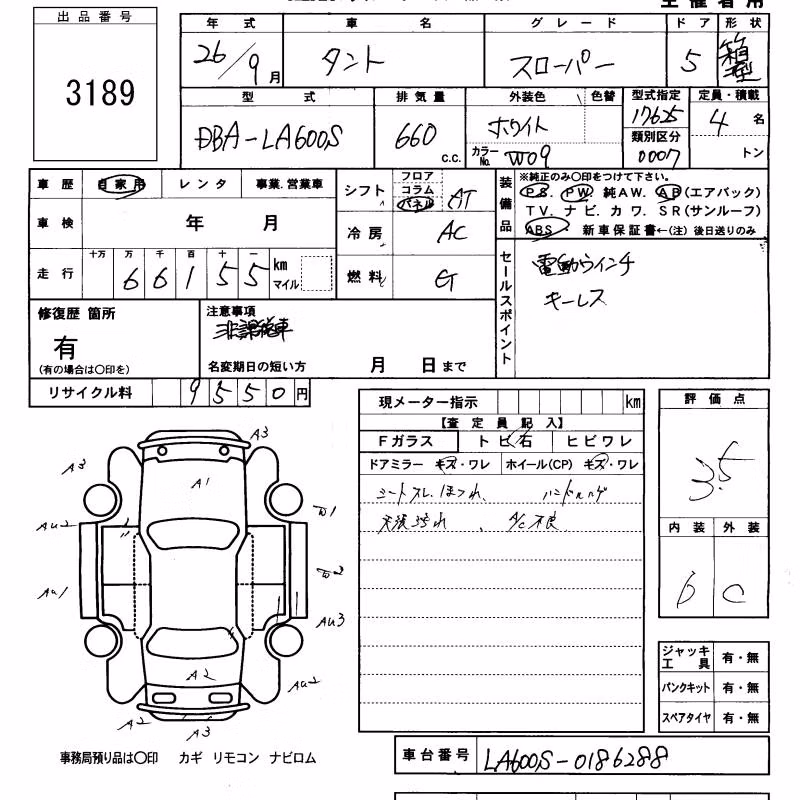 主催者用
出品番号
3189
年式 車名 グレード ドア 形状
26/9月 タント スローパー 5 箱型
型式 排気量 外装色 色替 型式指定 定員・積載
DBA-LA600S 660 c.c. ホワイト 17625 4名
類別区分
カラーNo. W09 0007 トン
車歴 自家用 レンタ 事業.営業車
シフト フロア コラム パネル AT
装備品
※純正のみ〇印をつけて下さい。
P S. P W. 純A W. A B(エアバック)
T V. ナビ. カワ. S R(サンルーフ)
A B S. 新車保証書←(注)後日送りのみ
車検 年 月
冷房 AC
走行 十万 万 千 百 十 一
66155 km マイル
燃料 G
セールスポイント
電動ウインチ
キーレス
修復歴 箇所
有
(有の場合は〇印を)
注意事項
非課税車
名変期日の短い方 月 日まで
リサイクル料 9550円
現メーター指示 km
【査定員記入】
Fガラス トビ石 ヒビワレ
ドアミラー キズ・ワレ ホイール(CP) キズ・ワレ
シートスレ、ほつれ、 ハンドルハゲ
天張汚れ、 A/C不良
評価点
3.5
内装 外装
b C
A3
A3
A1
AU2
W1
AU1
W2
AU3
A2
AU2
A2
A3
ジャッキ工具 有・無
パンクキット 有・無
スペアタイヤ 有・無
事務局預り品は〇印 カギ リモコン ナビロム
車台番号 LA600S-0186288